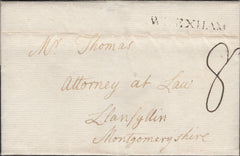 WREXHAM
Mr Thomas
8
Attorney at Law
Llanfyllin
Montgomeryshire